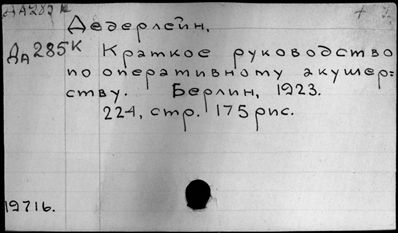 ДА285К
Дедерлейн,
ДА285К Краткое руководство
по оперативному акушер=
ству. Берлин, 1923.
224, стр. 175 рис.
19716.